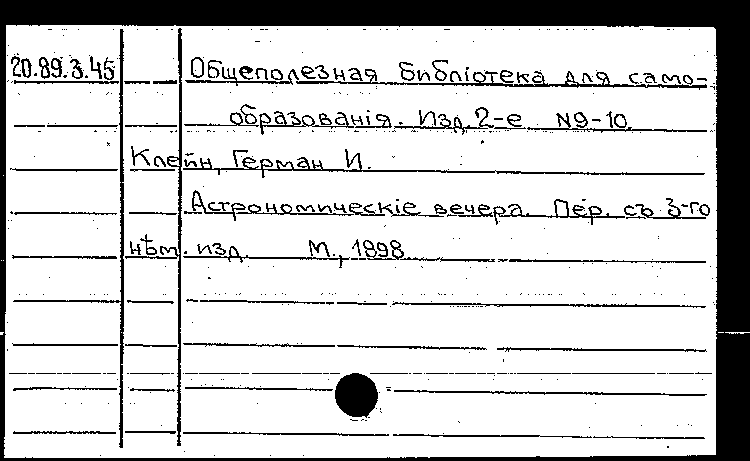 20.89.3.45 Общеполезная библіотека для само-
образованія. Изд. 2-е N9-10.
Клейн, Герман И.
Астрономическіе вечера. Пер. съ 3-го
нѣм. изд. М., 1898